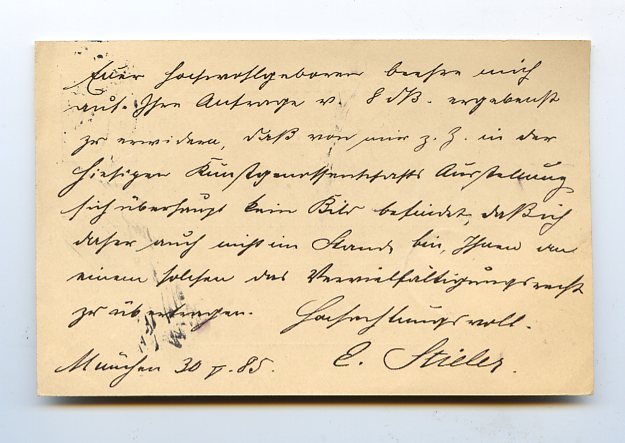 Euer Hochwohlgeboren beehre mich
auf Ihre Anfrage v. 8 dß. ergebenst
zu erwidern, daß von mir z. Z. in der
hiesigen Kunstgenossenschafts Ausstellung
sich überhaupt kein Bild befindet, daß ich
daher auch nicht im Stande bin, Ihnen von
einem solchen das Vervielfältigungsrecht
zu übertragen. Hochachtungsvoll.
München 30 V. 85. E. Stieler.